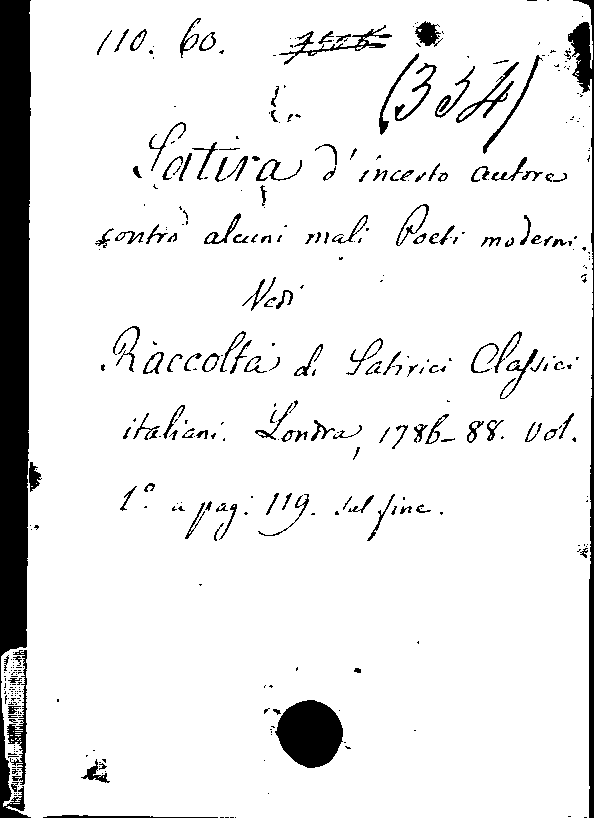 110. 60.
(334)
Satira d'incerto autore
contro alcuni mali Poeti moderni.
Vedi
Raccolta di Satirici Classici
italiani. Londra, 1786-88. Vol.
1º a pag: 119. sul fine.